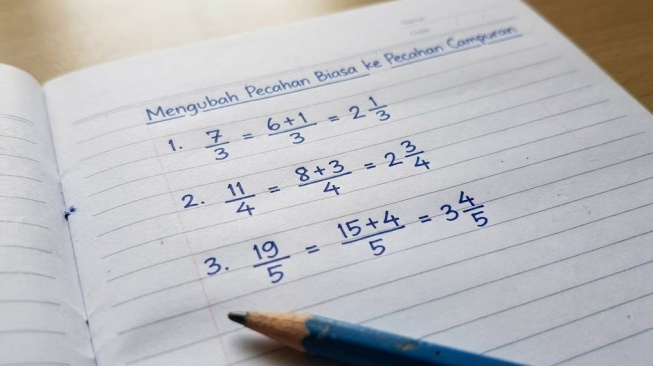 Mengubah Pecahan Biasa ke Pecahan Campuran
1. 7/3 = 6+1/3 = 2 1/3
2. 11/4 = 8+3/4 = 2 3/4
3. 19/5 = 15+4/5 = 3 4/5